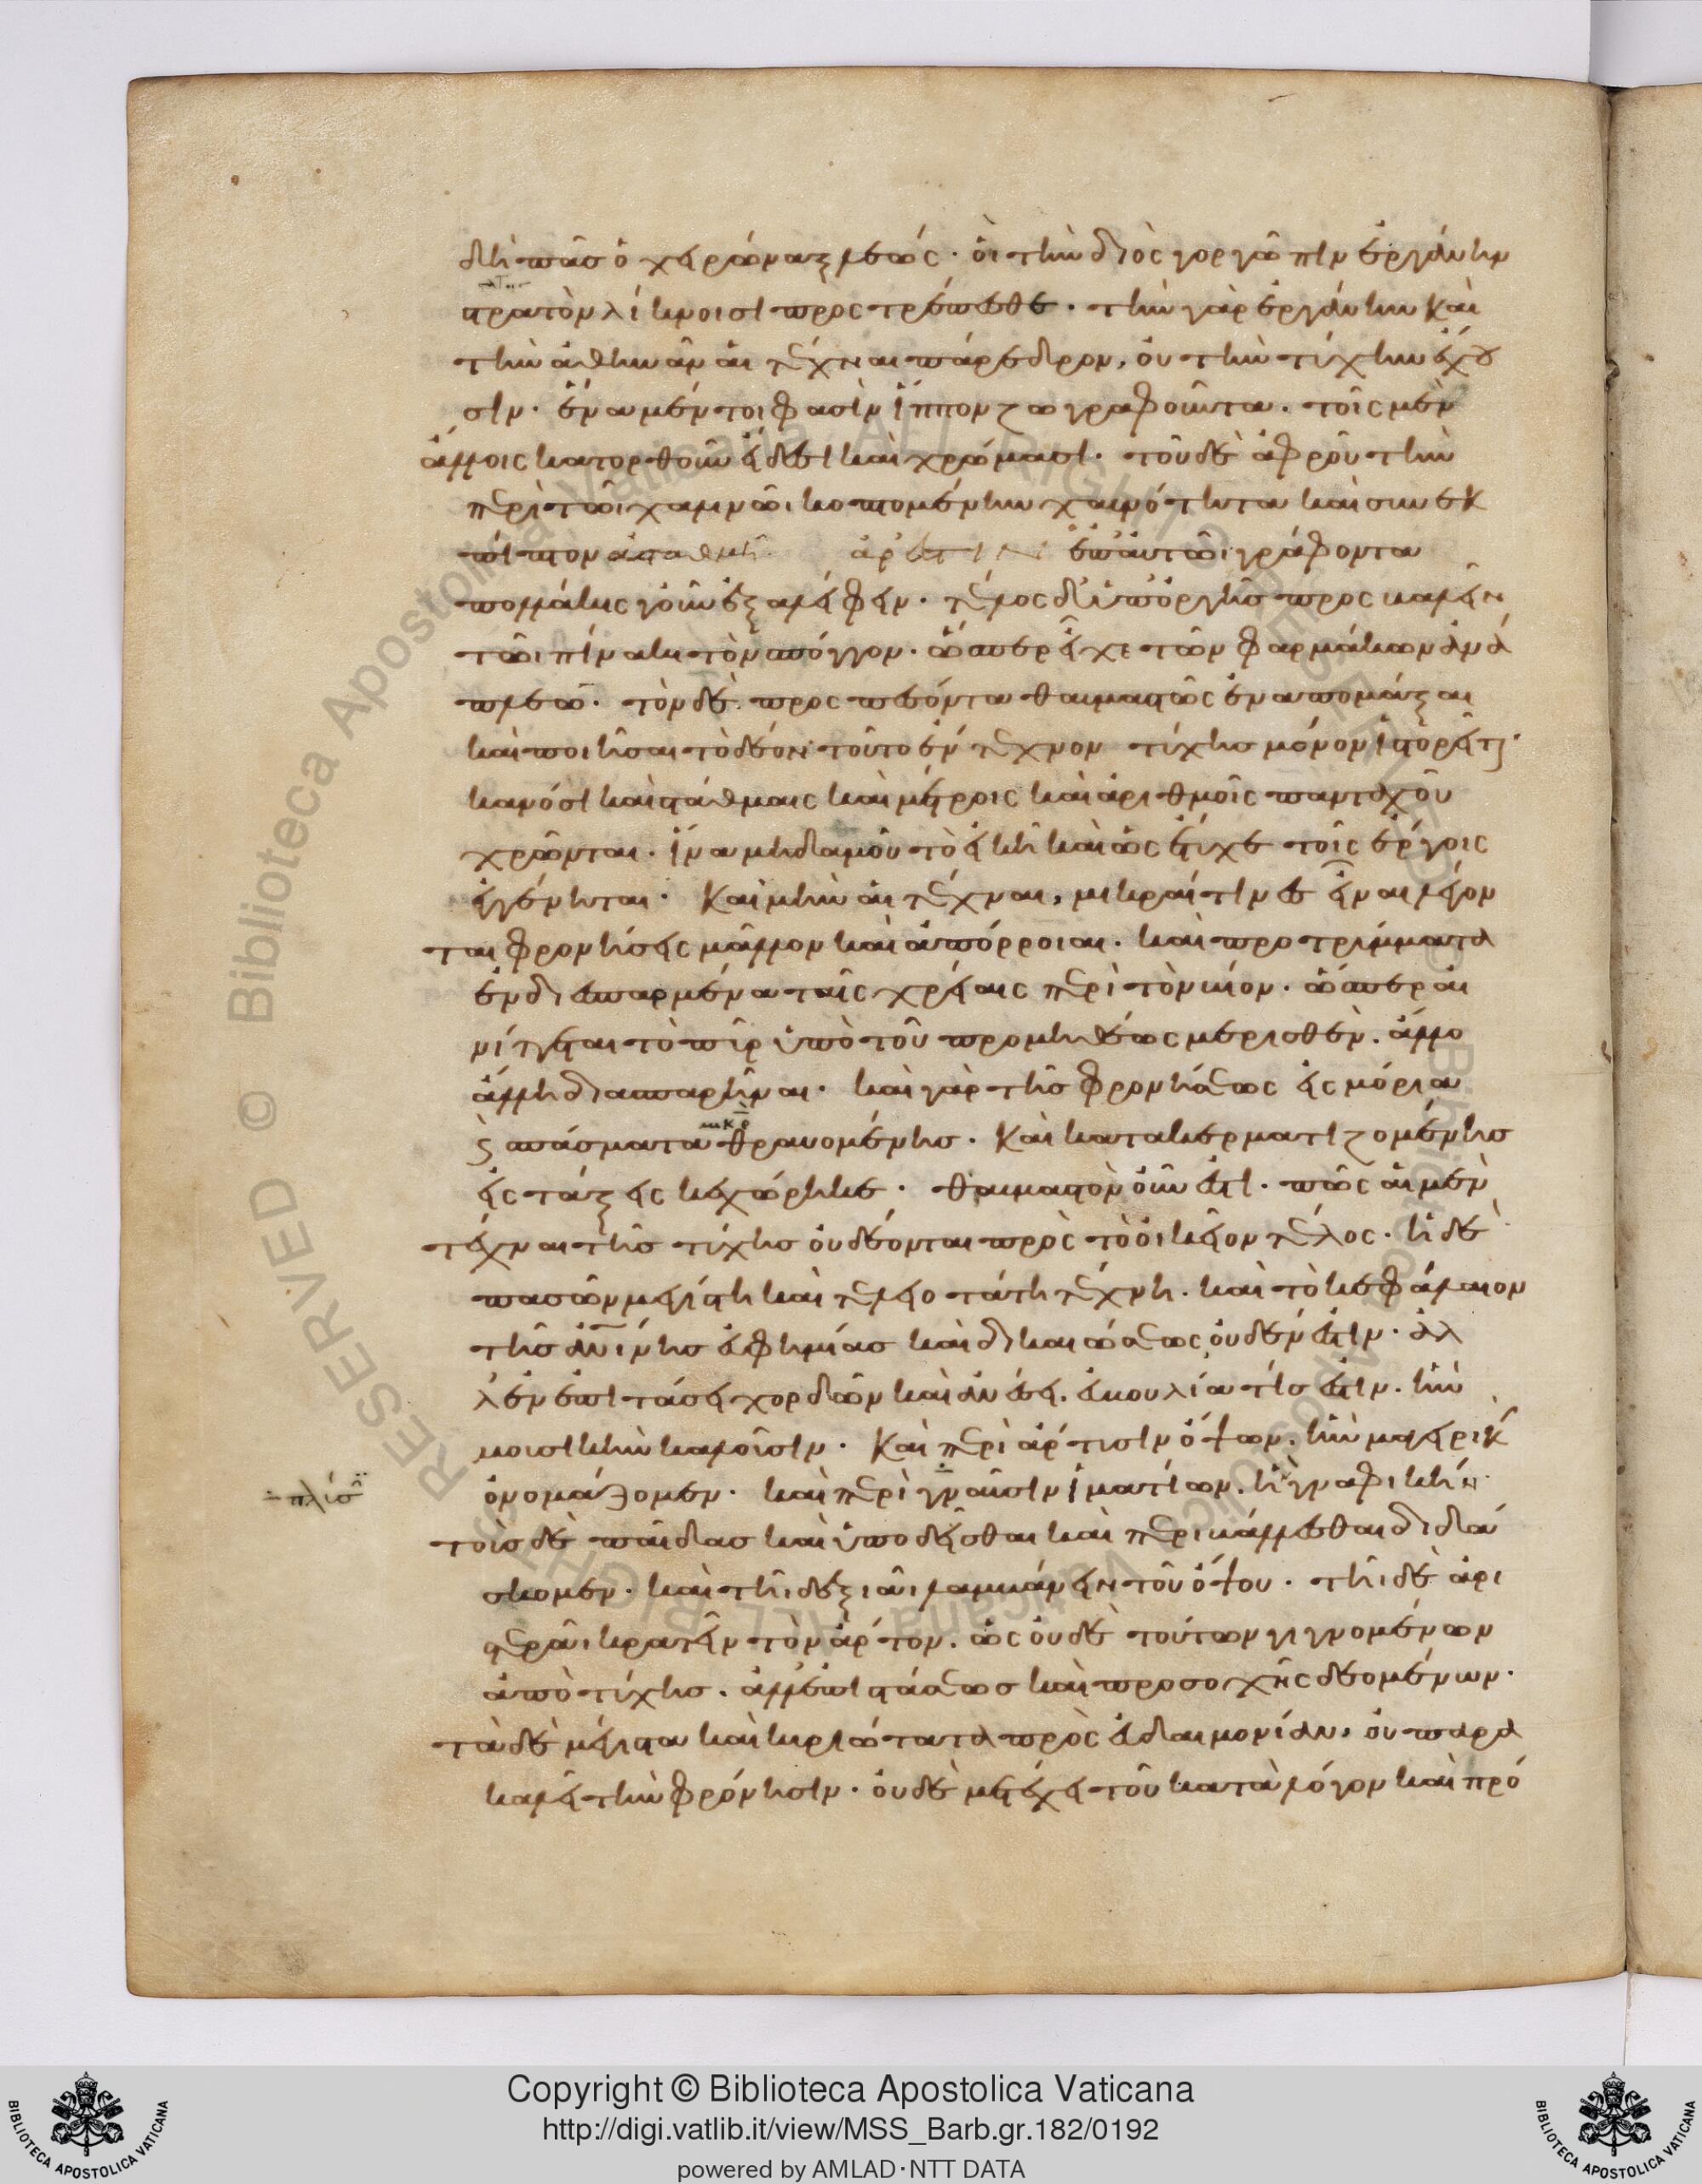 δὴ πᾶς ὁ χειρώναξ λεώς· οἳ τὴν διὸς γοργῶπιν ἐργάνην
στατὸν λίκνοισι προστρέπεσθε. τὴν γὰρ ἐργάνην καὶ
τὴν ἀθηνᾶν αἱ τέχναι πάρεδρον, οὐ τὴν τύχην ἔχου
σιν. ἕνα μέντοι φασὶν ἵππον ζωγραφοῦντα. τοῖς μὲν
ἄλλοις κατορθοῦν εἴδεσι καὶ χρώμασι. τοῦ δὲ ἀφροῦ τὴν
περὶ τῶι χαλινῶι κοπτομένην χαυνότητα καὶ συνεκ
πῖπτον ἐπ' αὐτῶι γράφοντα
πολλάκις γοῦν ἐξαλείφειν. τέλος δ' ὑπ' ὀργῆς προσβαλεῖν
τῶι πίνακι τὸν σπόγγον. ὥσπερ εἶχε τῶν φαρμάκων ἀνά
πλεω. τὸν δὲ προσπεσόντα θαυμαστῶς ἐναπομάξαι
καὶ ποιῆσαι τὸ δέον· τοῦτο ἔντεχνον τύχης μόνον ἱστορεῖται·
κανόσι καὶ στάθμαις καὶ μέτροις καὶ ἀριθμοῖς πανταχοῦ
χρῶνται. ἵνα μηδαμοῦ τὸ εἰκῆ καὶ ὡς ἔτυχε τοῖς ἔργοις
ἐγγένηται. καὶ μὴν αἱ τέχναι, μικραί τινες εἶναι λέγον
ται φρονήσεις μᾶλλον καὶ ἀπόρροιαι. καὶ προστρίμματα
ἐνδιεσπαρμένα ταῖς χρείαις περὶ τὸν βίον. ὥσπερ αἰ
νίττεται τὸ πῦρ ὑπὸ τοῦ προμηθέως μερισθὲν. ἄλλο
ἄλλη διασπαρῆναι. καὶ γὰρ τῆς φρονήσεως εἰς μόρια
καὶ σπάσματα μικρὰ θραυομένης. καὶ κατακερματιζομένης
εἰς τάξεις κεχώρηκε. θαυμαστὸν οὖν ἐστι. πῶς αἱ μὲν
τέχναι τῆς τύχης οὐ δέονται πρὸς τὸ οἰκεῖον τέλος. ἡ δὲ
πασῶν μεγίστη καὶ τελειοτάτη τέχνη. καὶ τὸ κεφάλαιον
τῆς ἀνθρωπίνης εὐφημίας καὶ δικαιώσεως, οὐδέν ἐστιν. ἀλ
λ' ἐν ἐπιτάσει χορδῶν καὶ ἀνέσει. εὐβουλία τίς ἐστιν. ἣν
μουσικὴν καλοῦσιν. καὶ περὶ ἄρτυσιν ὄψων. ἣν μαγειρικὴν
ὀνομάζομεν. καὶ περὶ γναῦσιν ἱματίων. ἡ γναφικήν·
τοὺς δὲ παῖδας καὶ ὑποδεῖσθαι καὶ περιβάλλεσθαι διδά
σκομεν. καὶ τῆι δεξιᾶι λαμβάνειν τοῦ ὄψου. τῆι δὲ ἀρι
στερᾶι κρατεῖν τὸν ἄρτον. ὡς οὐδὲ τούτων γιγνομένων
ἀπὸ τύχης. ἀλλ' ἐπιστάσεως καὶ προσοχῆς δεομένων.
τὰ δὲ μέγιστα καὶ κυριώτατα πρὸς εὐδαιμονίαν, οὐ παρα
καλεῖ τὴν φρόνησιν. οὐδὲ μετέχει τοῦ κατὰ λόγον καὶ πρό
Copyright © Biblioteca Apostolica Vaticana
http://digi.vatlib.it/view/MSS_Barb.gr.182/0192
powered by AMLAD·NTT DATA
BIBLIOTECA APOSTOLICA VATICANA
BIBLIOTECA APOSTOLICA VATICANA